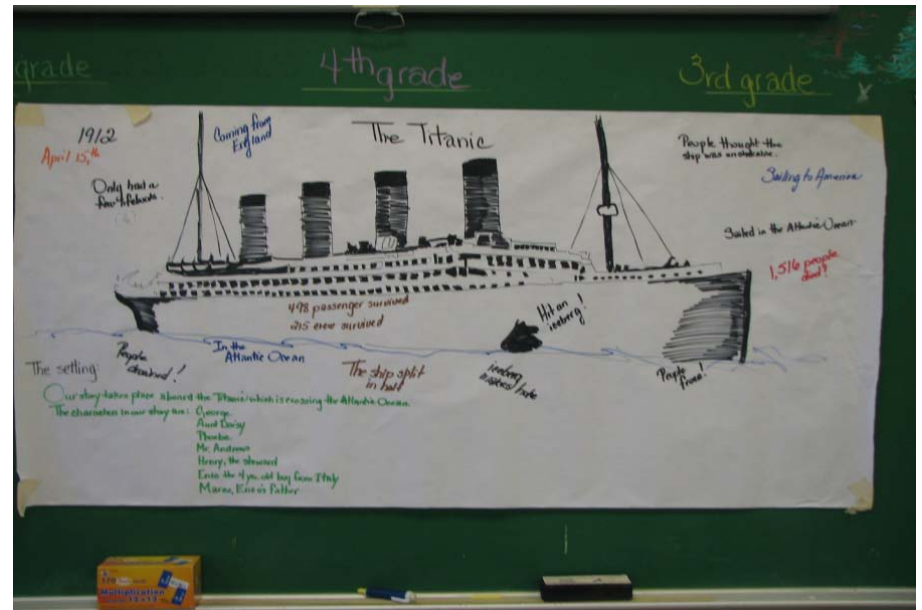 grade
4th grade
3rd grade
1912
April 15,th
Only had a
few lifeboats.
Coming from
England
The Titanic
People thought the
ship was unsinkable.
Sailing to America
Sailed in the Atlantic Ocean
1,516 people
died!
498 passenger survived
215 crew survived
Hit an
iceberg!
In the
Atlantic Ocean
The ship split
in half
iceberg
makes hole
People
froze!
People
drowned!
The setting:
Our story takes place aboard the Titanic which is crossing the Atlantic Ocean.
The characters in our story are: George
Aunt Daisy
Phoebe
Mr. Andrews
Henry, the steward
Enzo the 4 yr. old boy from Italy
Marco, Enzo's Father
120
Multiplication